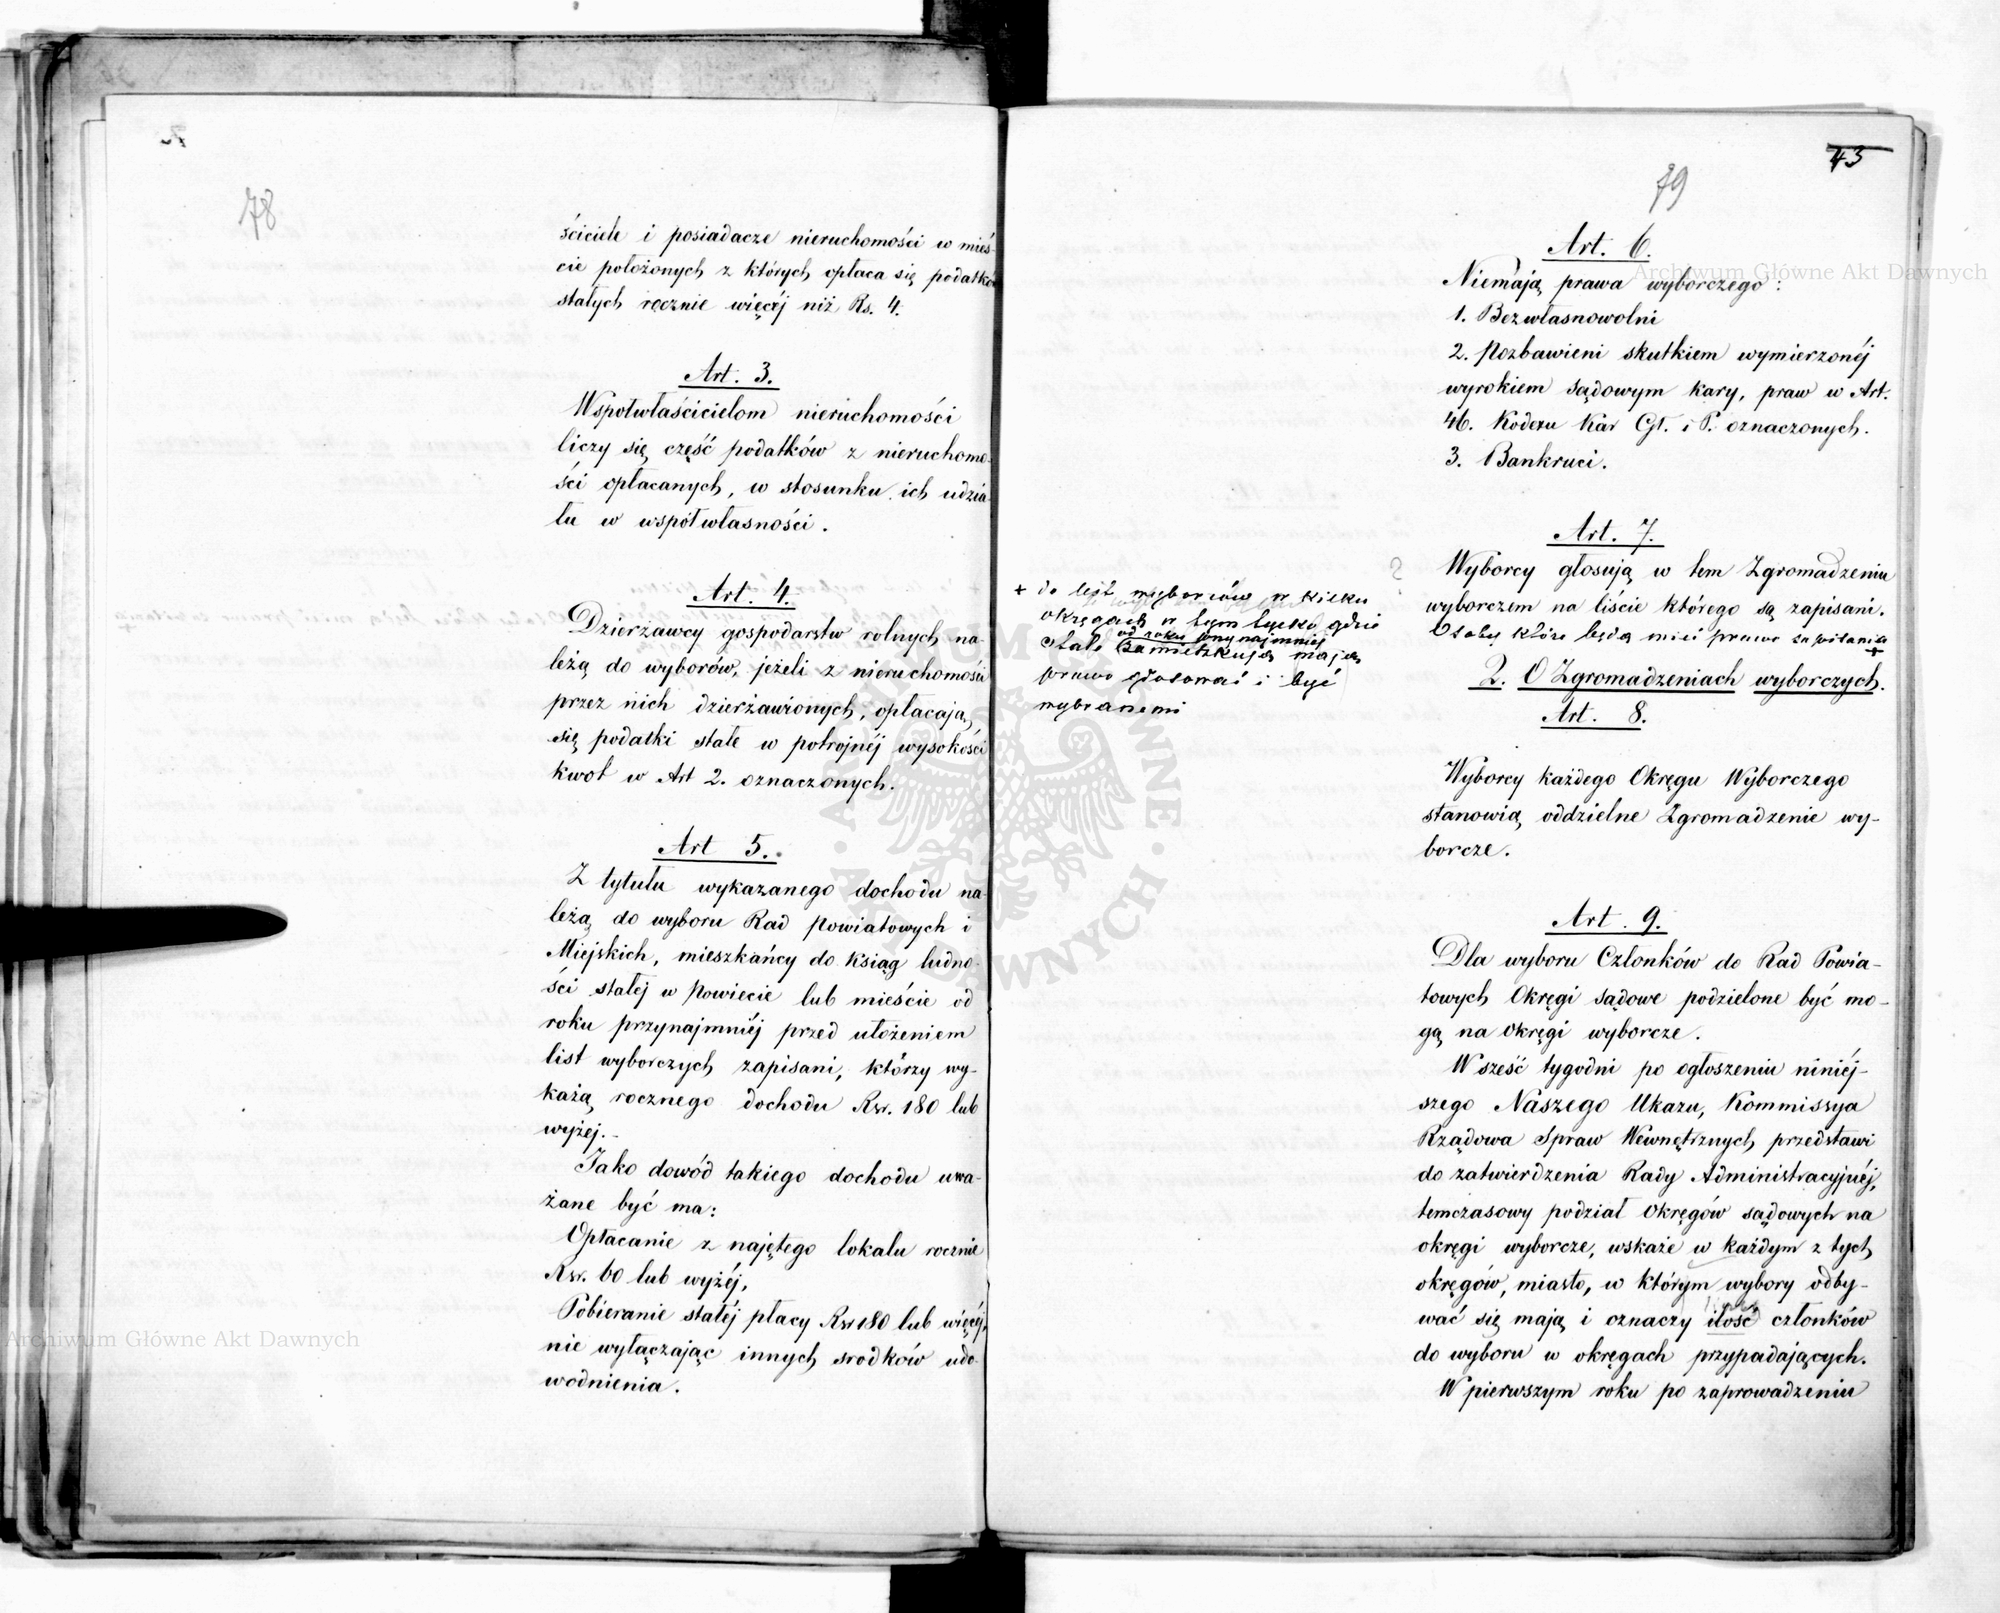 78
ściciele i posiadacze nieruchomości w mieś-
cie położonych z których opłaca się podatków
stałych rocznie więcéj niż Rs. 4.
Art. 3.
Wspołwłaścicielom nieruchomości
liczy się część podatków z nieruchomo-
ści opłacanych, w stosunku ich udzia-
łu w współwłasności.
Art. 4.
Dzierżawcy gospodarstw rolnych na-
leżą do wyborów, jeżeli z nieruchomości
przez nich dzierżawionych, opłacają
się podatki stałe w potrojnéj wysokości
kwot w Art 2. oznaczonych.
Art 5.
Z tytułu wykazanego dochodu na-
leżą do wyboru Rad Powiatowych i
Miejskich, mieszkańcy do ksiąg ludno-
ści stałej w Powiecie lub mieście od
roku przynajmniéj przed ułożeniem
list wyborczych zapisani, którzy wy-
każą rocznego dochodu Rsr. 180 lub
wyżej.-
Jako dowód takiego dochodu uwa-
żane być ma:
Opłacanie z najętego lokalu rocznie
Rsr. 60 lub wyżéj,
Pobieranie stałéj płacy Rsr 180 lub więcéj,
nie wyłączając innych srodków udo-
wodnienia.
43
79
Art. 6.
Niemają prawa wyborczego:
1. Bezwłasnowolni
2. Pozbawieni skutkiem wymierzonéj
wyrokiem sądowym kary, praw w Art.
46. Kodexu Kar Gł. i P. oznaczonych.
3. Bankruci.
Art. 7.
Wyborcy głosują w tem Zgromadzeniu
wyborczem na liście którego są zapisani.
Osoby które będą mieć prawo zapisania +
+ do list wyborców w kilku
okręgach w tym tylko gdzie
od roku przynajmniej
stale zamieszkują mają
prawo głosować i być
wybranemi
2. O Zgromadzeniach wyborczych.
Art. 8.
Wyborcy każdego Okręgu Wyborczego
stanowią oddzielne Zgromadzenie wy-
borcze.
Art. 9.
Dla wyboru Członków do Rad Powia-
towych Okręgi sądowe podzielone być mo-
gą na okręgi wyborcze.
W sześć tygodni po ogłoszeniu niniéj-
szego Naszego Ukazu, Kommissya
Rządowa Spraw Wewnętrznych przedstawi
do zatwierdzenia Rady Administracyjnéj,
temczasowy podział Okręgów sądowych na
okręgi wyborcze, wskaże w każdym z tych
okręgów, miasto, w którym wybory odby-
wać się mają i oznaczy ilość członków
do wyboru w okręgach przypadających.
W pierwszym roku po zaprowadzeniu
Archiwum Główne Akt Dawnych
Archiwum Główne Akt Dawnych
ARCHIWUM GŁÓWNE AKT DAWNYCH